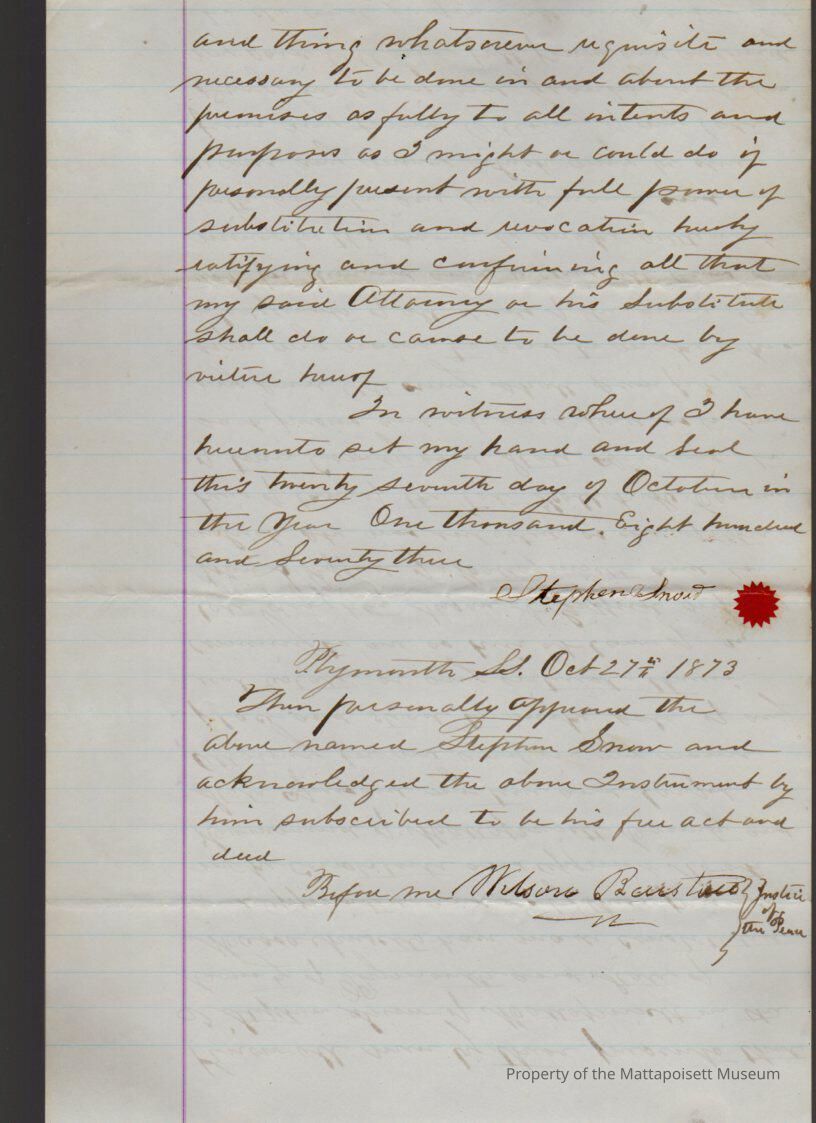 and thing whatsoever requisite and
necessary to be done in and about the
premises as fully to all intents and
purposes as I might or could do if
personally present with full power of
substitution and revocation hereby
ratifying and confirming all that
my said Attorney or his Substitute
shall do or cause to be done by
virtue hereof
In witness whereof I have
hereunto set my hand and Seal
this twenty seventh day of October in
the Year One thousand. Eight hundred
and Seventy three
Stephen Snow
Plymouth SS. Oct 27th 1873
Then personally appeared the
above named Stephen Snow and
acknowledged the above Instrument by
him subscribed to be his free act and
deed
Before me Wilson Barstow } Justice
of
the Peace
Property of the Mattapoisett Museum